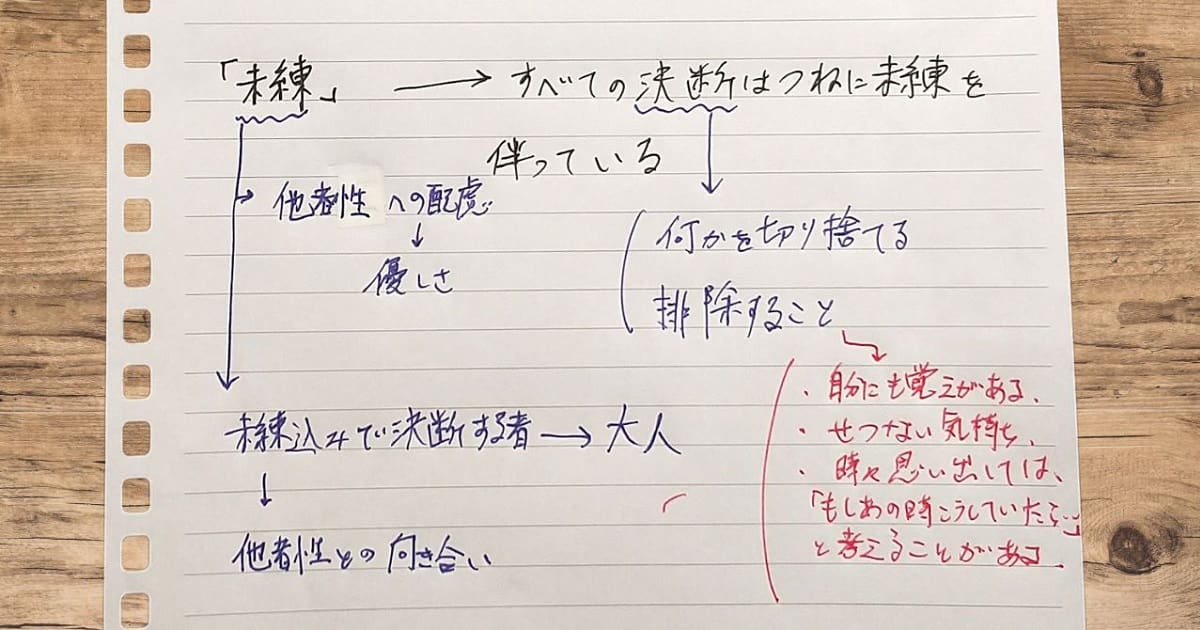 「未練」 → すべての決断はつねに未練を
伴っている
他者性への配慮
↓
優しさ
何かを切り捨てる
排除すること
・自分にも覚えがある、
・せつない気持ち、
・時々思い出しては、
「もしあの時こうしていたら…」
と考えることがある。
未練込みで決断する者 → 大人
↓
他者性との向き合い